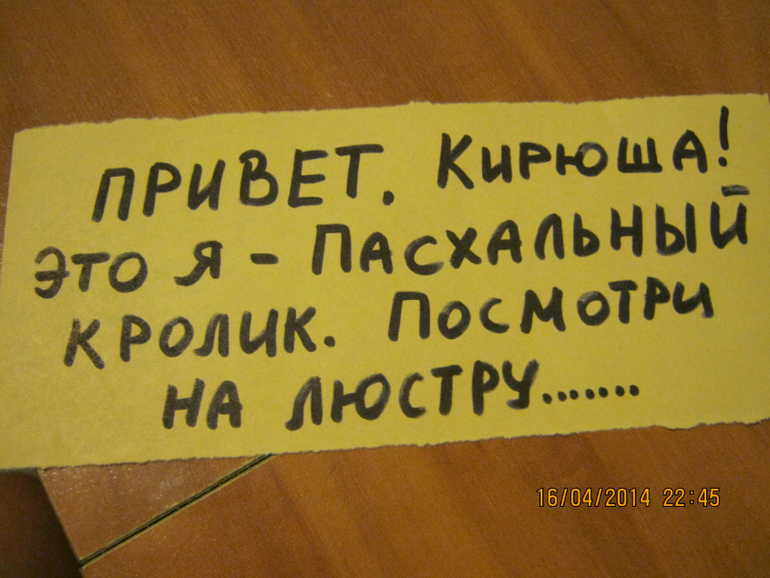 ПРИВЕТ. КИРЮША!
ЭТО Я - ПАСХАЛЬНЫЙ
КРОЛИК. ПОСМОТРИ
НА ЛЮСТРУ.......
16/04/2014 22:45